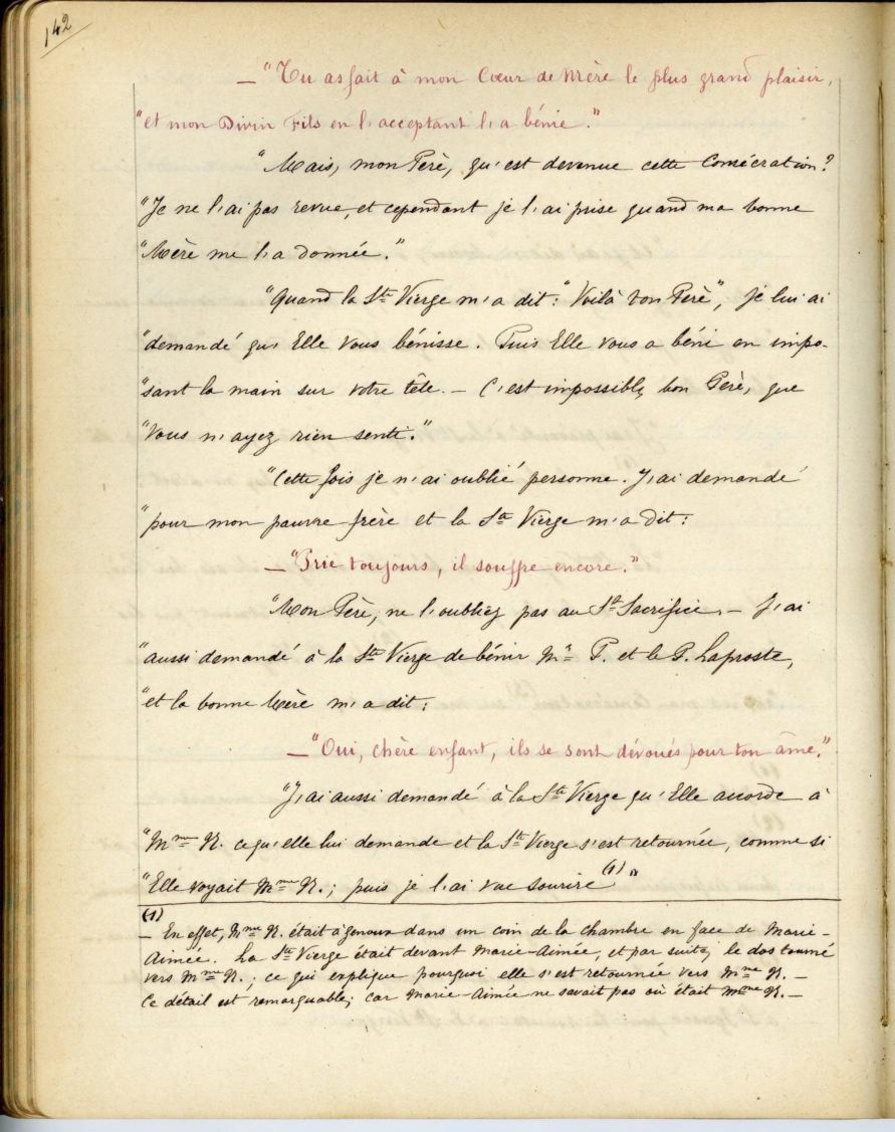 142
— "Tu as fait à mon Cœur de Mère le plus grand plaisir,
"et mon Divin Fils en l'acceptant l'a bénie."
"Mais, mon Père, qu'est devenue cette Consécration?
"Je ne l'ai pas revue, et cependant je l'ai prise quand ma bonne
"Mère me l'a donnée."
"Quand la Ste Vierge m'a dit: "Voilà ton Père", je lui ai
"demandé qu'Elle vous bénisse. Puis Elle vous a béni en impo-
"sant la main sur votre tête. — C'est impossible, bon Père, que
"vous n'ayez rien senti."
"Cette fois je n'ai oublié personne. J'ai demandé
"pour mon pauvre frère et la Ste Vierge m'a dit:
— "Prie toujours, il souffre encore."
"Mon Père, ne l'oubliez pas au St Sacrifice. — J'ai
"aussi demandé à la Ste Vierge de bénir Mr P. et le P. Laproste,
"et la bonne Mère m'a dit:
— "Oui, chère enfant, ils se sont dévoués pour ton âme."
"J'ai aussi demandé à la Ste Vierge qu'Elle accorde à
"Mme N. ce qu'elle lui demande et la Ste Vierge s'est retournée, comme si
"Elle voyait Mme N.; puis je l'ai vue sourire (1)"
(1)
— En effet, Mme N. était à genoux dans un coin de la chambre en face de Marie-
Aimée. La Ste Vierge était devant Marie-Aimée, et par suite, le dos tourné
vers Mme N.; ce qui explique pourquoi elle s'est retournée vers Mme N. —
Ce détail est remarquable; car Marie-Aimée ne savait pas où était Mme N. —